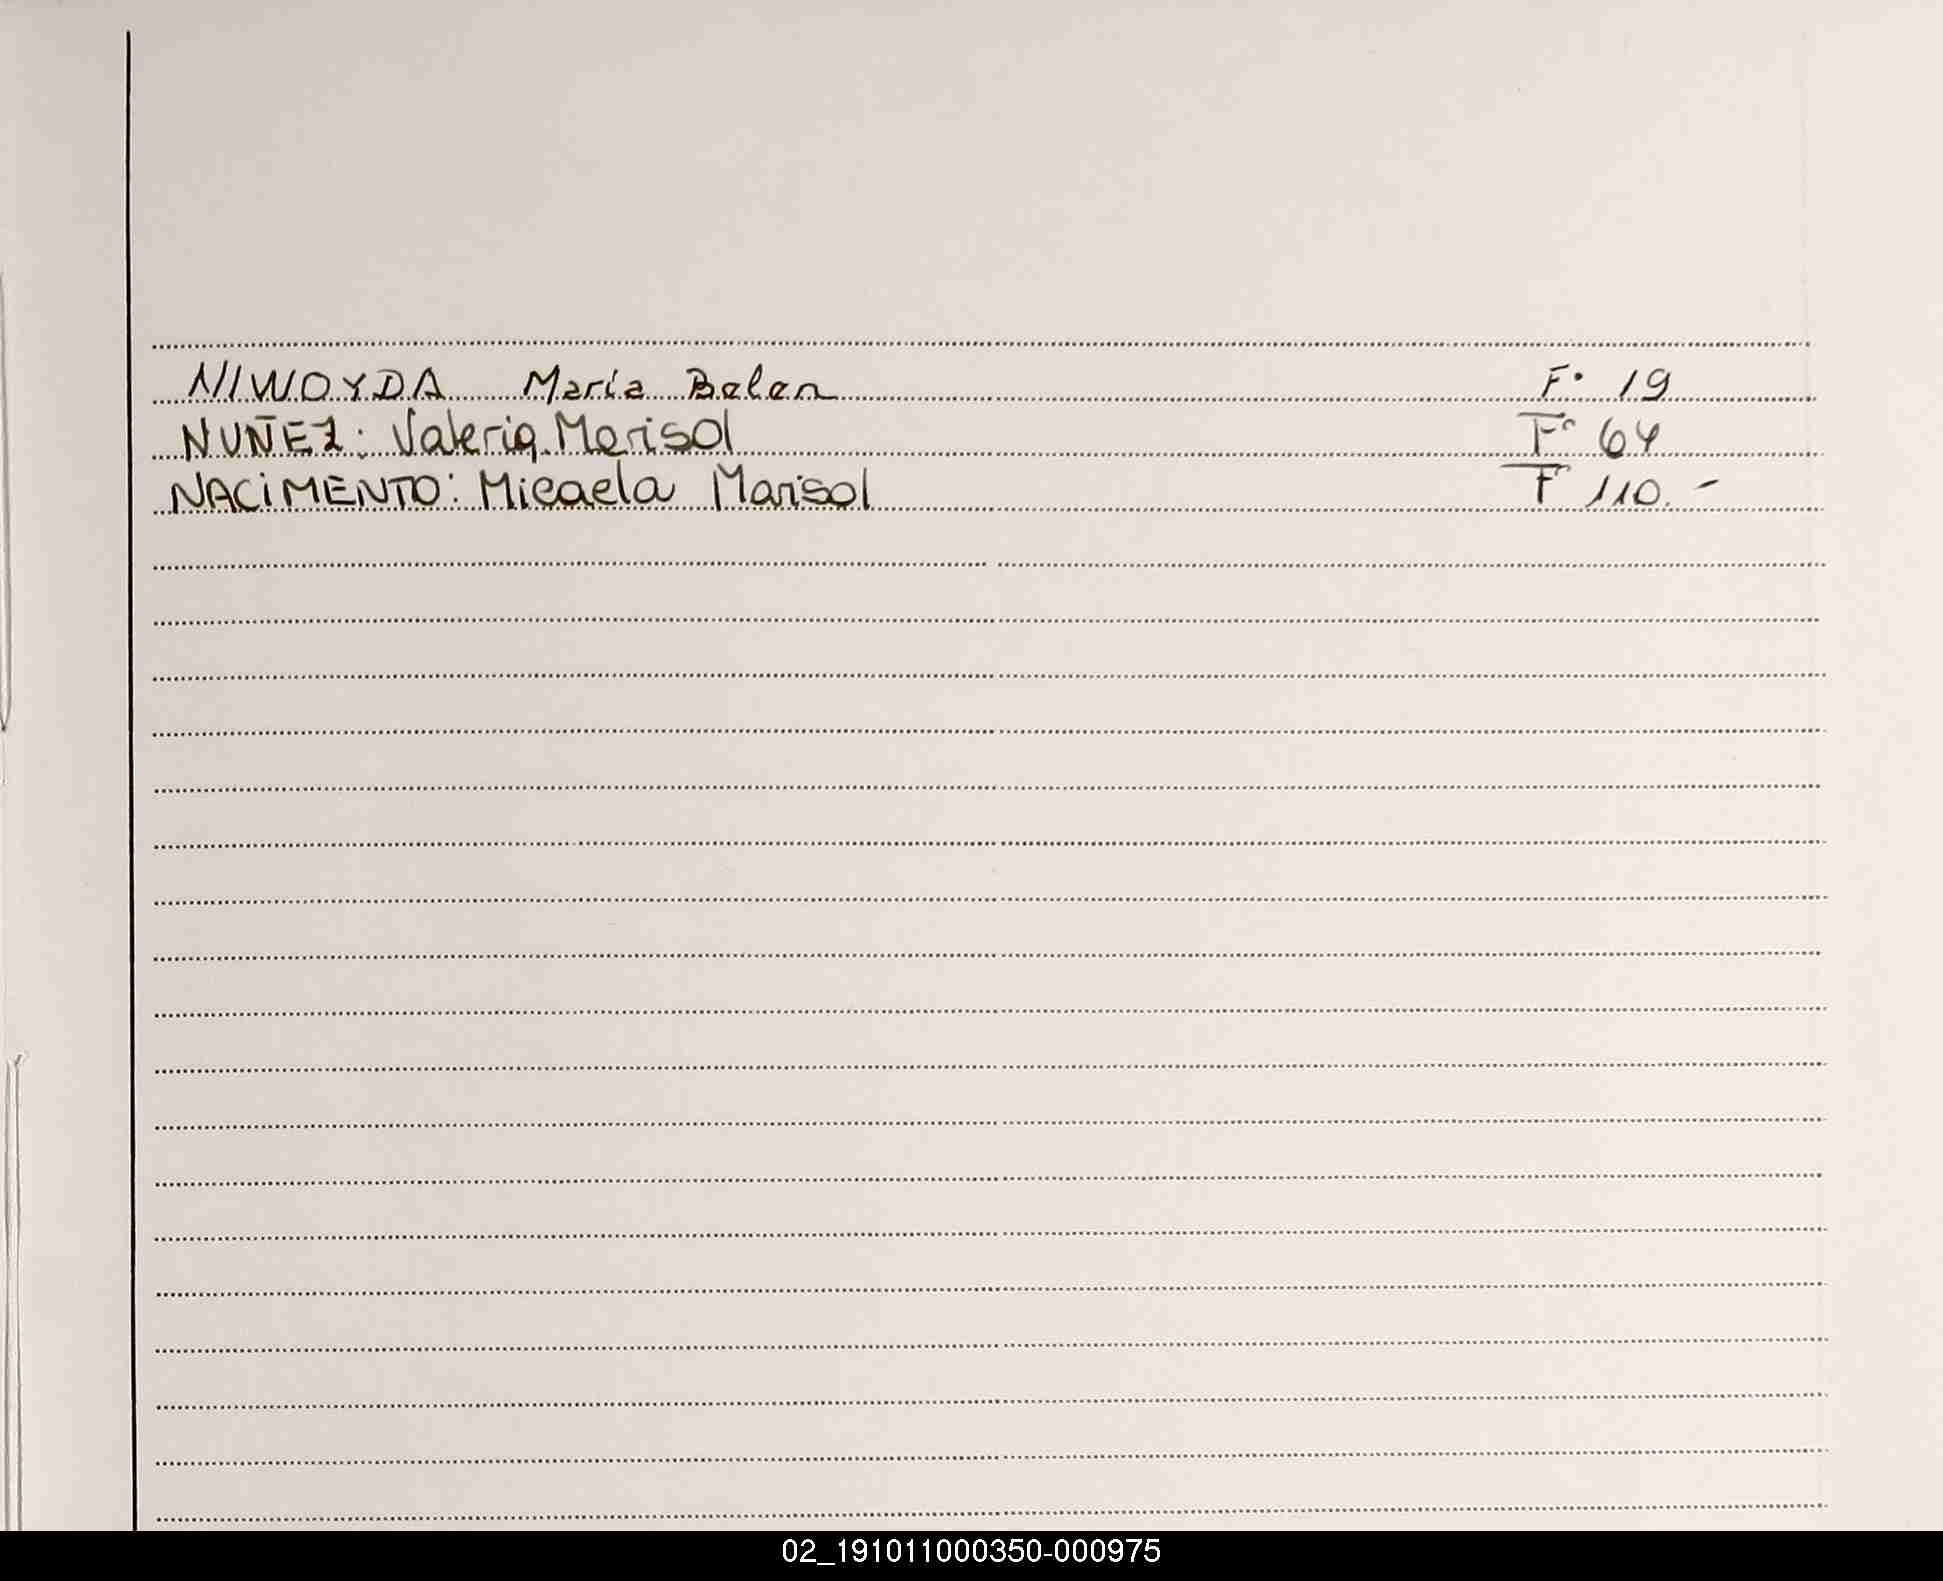 NIWOYDA Maria Belen F° 19
NUÑEZ: Valeria Marisol F° 64
NACiMENTO: Micaela Marisol F° 110.-
02_191011000350-000975